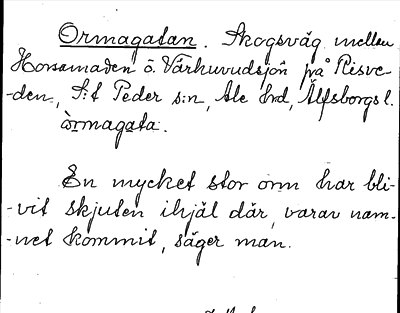 Ormagatan. Skogsväg mellan
Horsamaden o. Vårhuvudsjön på Risve-
-den, S:t Peder s:n, Ale hd, Älfsborgs l.
òrmagata.
En mycket stor orm har bli-
-vit skjuten ihjäl där, varav nam-
-net kommit, säger man.